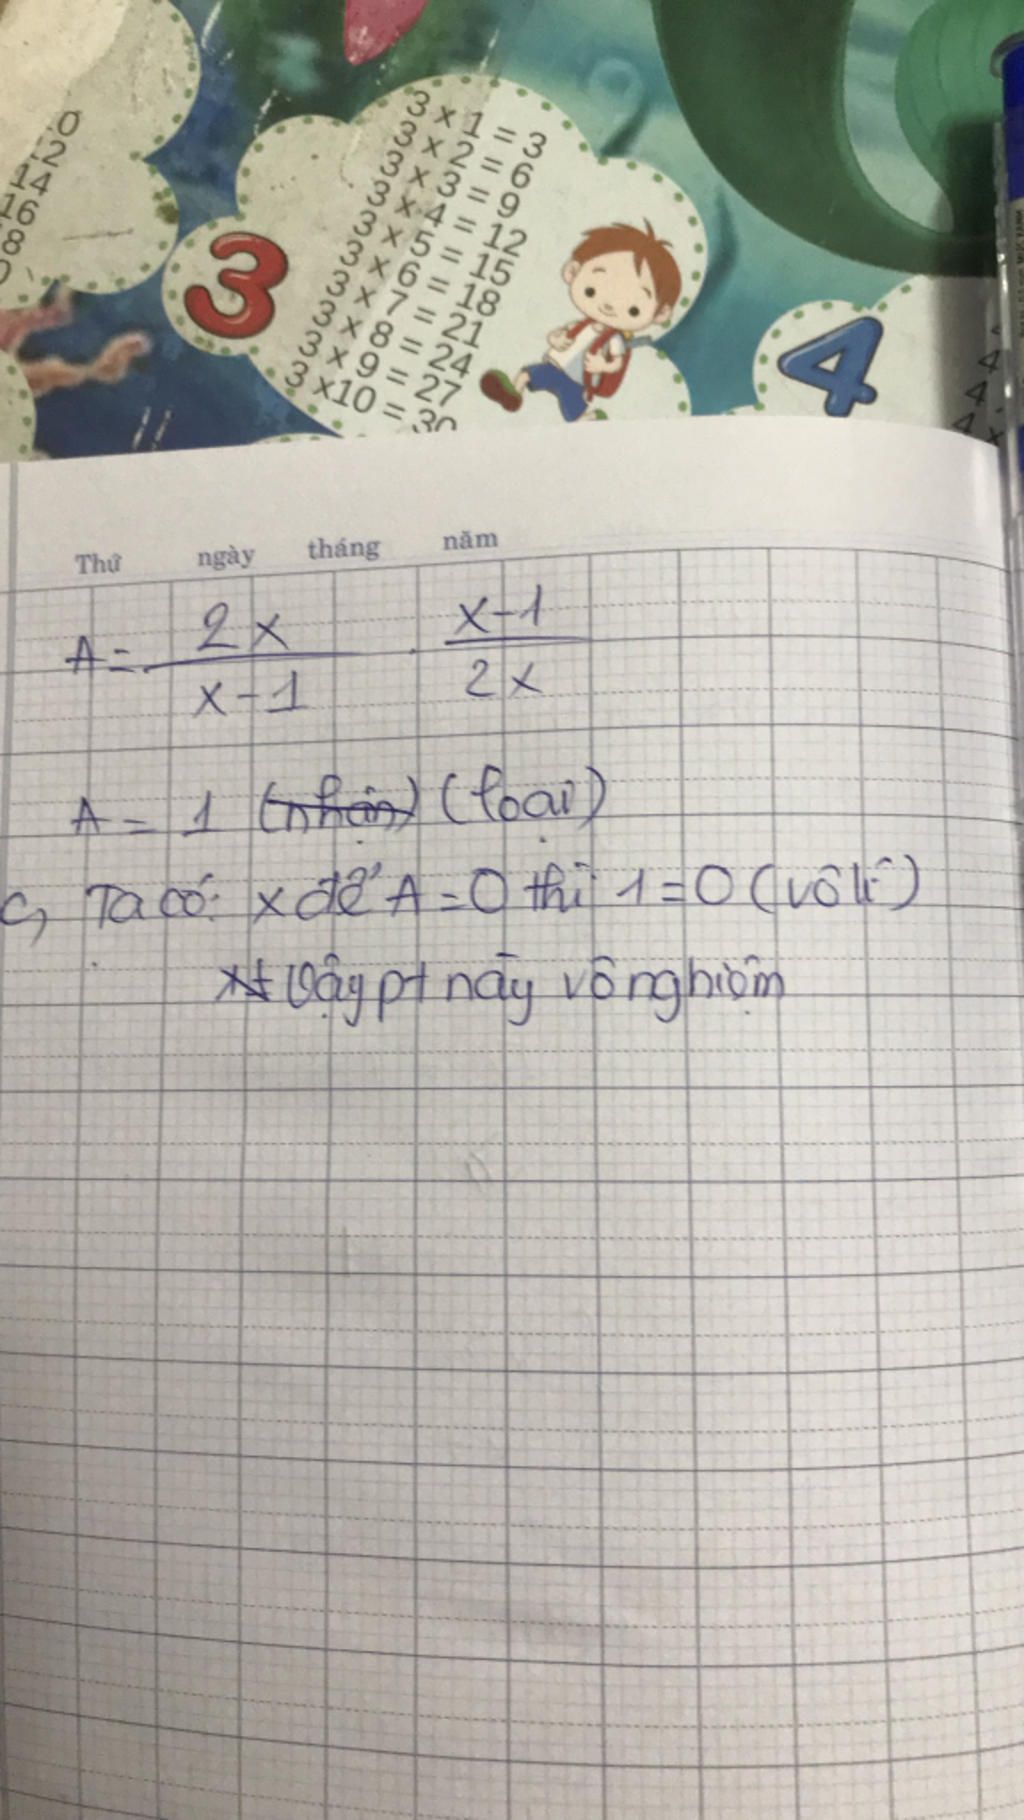 0
12
14
16
8
0
3
3 x 1 = 3
3 x 2 = 6
3 x 3 = 9
3 x 4 = 12
3 x 5 = 15
3 x 6 = 18
3 x 7 = 21
3 x 8 = 24
3 x 9 = 27
3 x10 = 30
4
4
4
4 x
Thứ ngày tháng năm
A = 2x/x-1 . x-1/2x
A = 1 (nhận) (loại)
c, Ta có: x để A = 0 thì 1 = 0 (vô lí)
Vậy pt này vô nghiệm